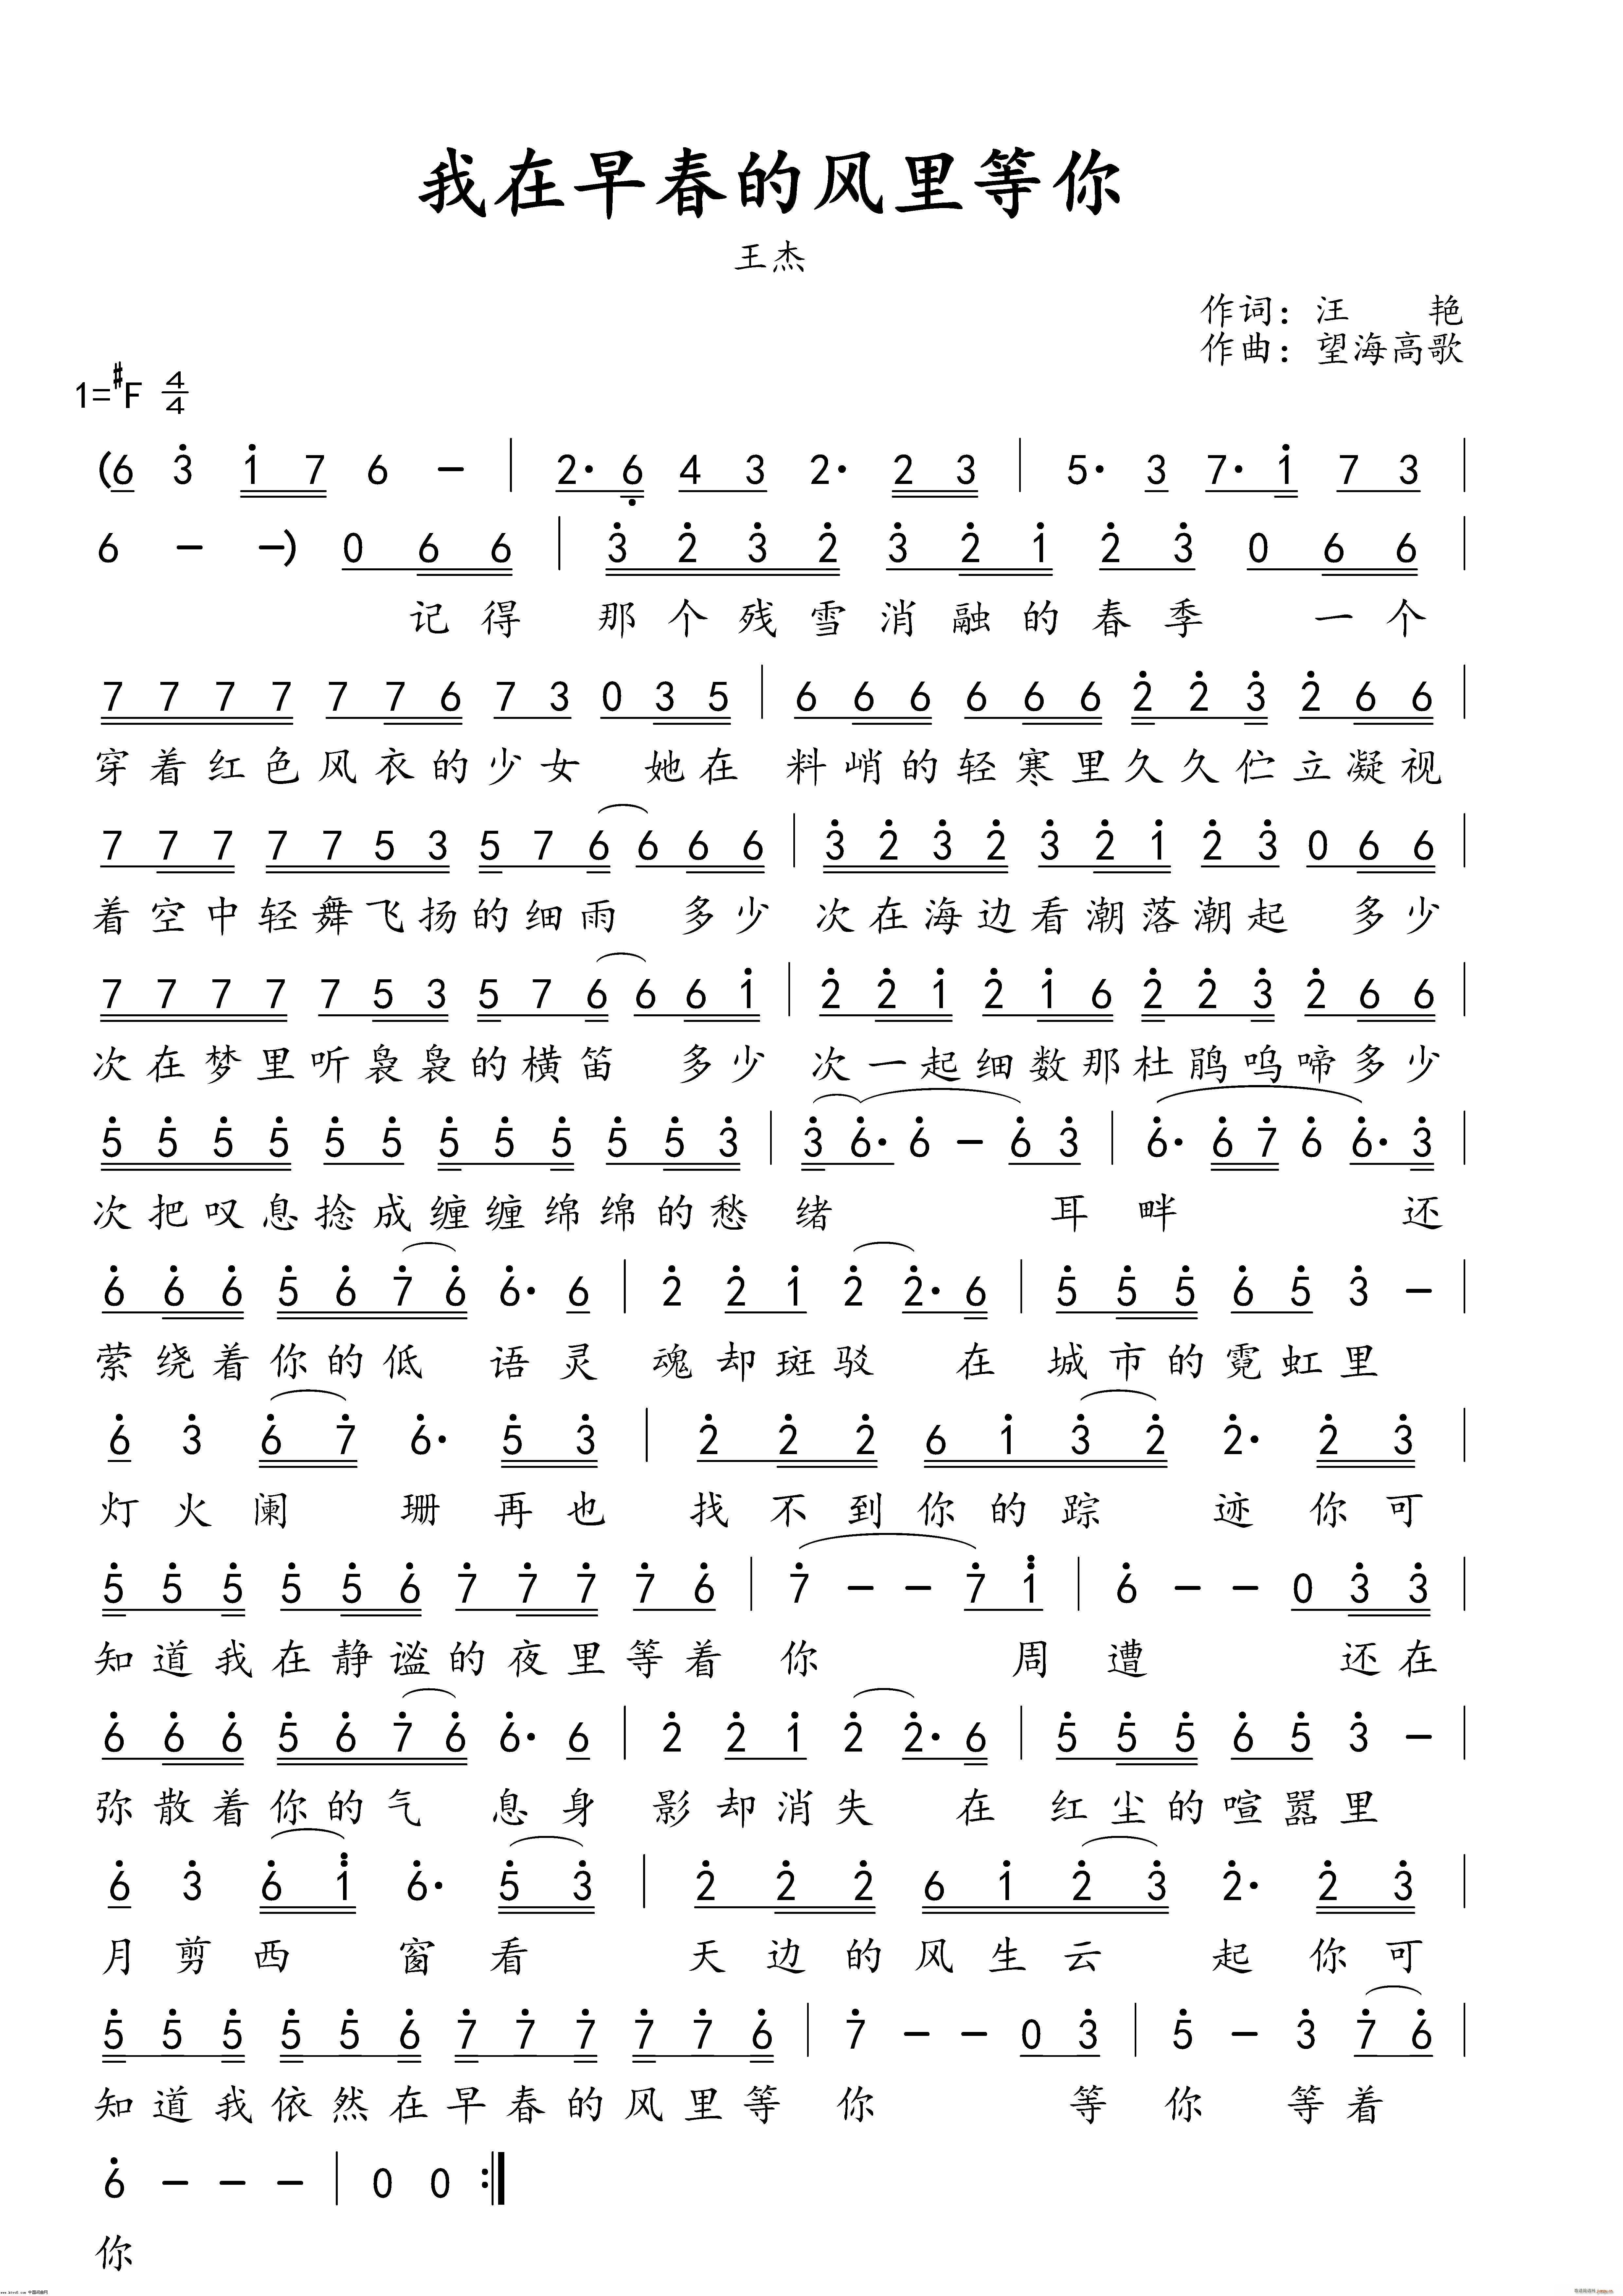 我在早春的风里等你
王杰
作词：汪　艳
作曲：望海高歌
1=#F 4/4
(6 3 1 7 6 － | 2· 6 4 3 2· 2 3 | 5· 3 7· 1 7 3 |
6 － －) 0 6 6 | 3 2 3 2 3 2 1 2 3 0 6 6 |
记得 那个残雪消融的春季 一个
7 7 7 7 7 7 6 7 3 0 3 5 | 6 6 6 6 6 6 2 2 3 2 6 6 |
穿着红色风衣的少女 她在 料峭的轻寒里久久伫立凝视
7 7 7 7 7 5 3 5 7 6 6 6 6 | 3 2 3 2 3 2 1 2 3 0 6 6 |
着空中轻舞飞扬的细雨 多少 次在海边看潮落潮起 多少
7 7 7 7 7 5 3 5 7 6 6 6 1 | 2 2 1 2 1 6 2 2 3 2 6 6 |
次在梦里听袅袅的横笛 多少 次一起细数那杜鹃呜啼多少
5 5 5 5 5 5 5 5 5 5 5 3 | 3 6· 6 － 6 3 | 6· 6 7 6 6· 3 |
次把叹息捻成缠缠绵绵的愁 绪 耳 畔 还
6 6 6 5 6 7 6 6· 6 | 2 2 1 2 2· 6 | 5 5 5 6 5 3 － |
萦绕着你的低 语灵 魂却斑驳 在 城市的霓虹里
6 3 6 7 6· 5 3 | 2 2 2 6 1 3 2 2· 2 3 |
灯火阑 珊再也 找不到你的踪 迹你可
5 5 5 5 5 6 7 7 7 7 6 | 7 － － 7 1 | 6 － － 0 3 3 |
知道我在静谧的夜里等着 你 周 遭 还在
6 6 6 5 6 7 6 6· 6 | 2 2 1 2 2· 6 | 5 5 5 6 5 3 － |
弥散着你的气 息身 影却消失 在 红尘的喧嚣里
6 3 6 1 6· 5 3 | 2 2 2 6 1 2 3 2· 2 3 |
月剪西 窗看 天边的风生云 起你可
5 5 5 5 5 6 7 7 7 7 7 6 | 7 － － 0 3 | 5 － 3 7 6 |
知道我依然在早春的风里等 你 等 你 等着
6 － － － | 0 0 :|
你